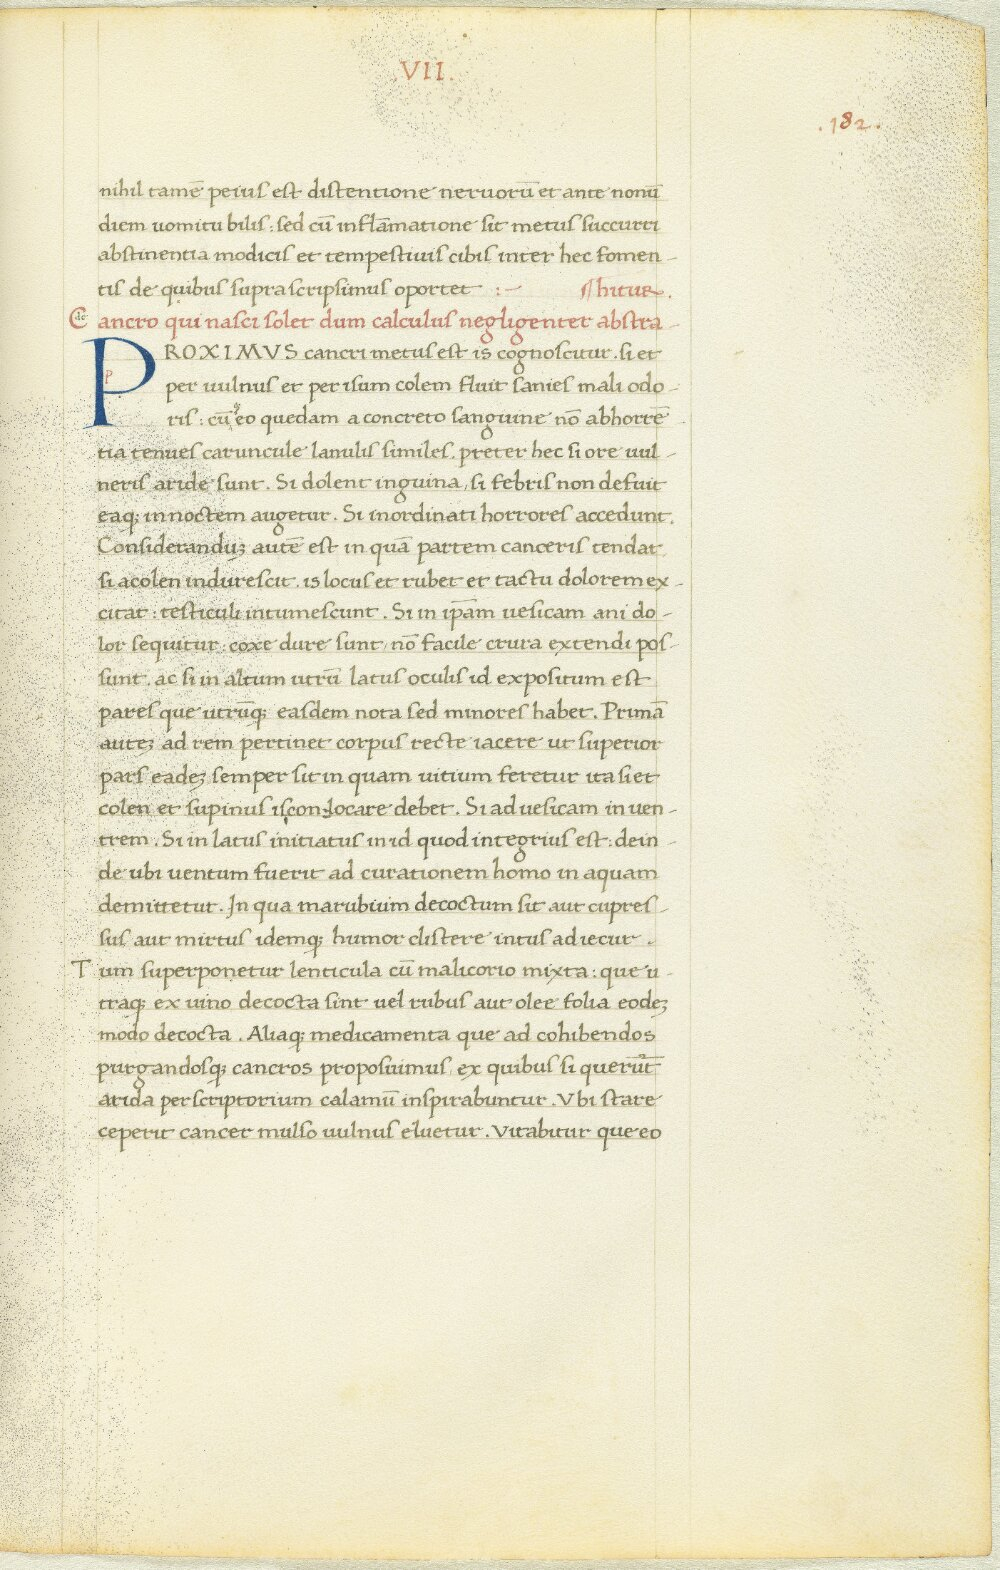 VII.
.182.
nihil tamē peius est distentione neruorū et ante nonū
diem uomitu bilis : sed cū inflāmatione sit metus succurri
abstinentia modicis et tempestiuis cibis inter hec fomen-
tis de quibus supra scripsimus oportet :- hitur.
De cancro qui nasci solet dum calculus negligenter abstra-
PROXIMVS cancri metus est is cognoscitur . si et
per uulnus et per isum colem fluit sanies mali odo-
ris : cū eo quedam a concreto sanguine nō abhorrē
tia tenues caruncule lanulis similes . preter hec si ore uul-
neris aride sunt . Si dolent inguina , si febris non defuit
eaq; in noctem augetur . Si inordinati horrores accedunt .
Consideranduz autē est in quā partem canceris tendat
si a colen indurescit . is locus et rubet et tactu dolorem ex-
citat : testiculi intumescunt . Si in ipām uesicam ani do-
lor sequitur : coxe dure sunt , nō facile crura extendi pos-
sunt . ac si in altum utrū latus oculis id expositum est
pares que utrūq; easdem nota sed minores habet . Primā
autez ad rem pertinet corpus recte iacere ut superior
pars eadez semper sit in quam uitium feretur ita si et
colen et supinus is conlocare debet . Si ad uesicam in uen-
trem . Si in latus initiatus in id quod integrius est : dein-
de ubi uentum fuerit ad curationem homo in aquam
demittetur . In qua marubium decoctum sit aut cupres-
sus aut mirtus idemq; humor clistere intus adiecur .
Tum superponetur lenticula cū malicorio mixta : que u-
traq; ex uino decocta sint uel rubus aut olee folia eodez
modo decocta . Aliaq; medicamenta que ad cohibendos
purgandosq; cancros proposuimus , ex quibus si querūt
arida per scriptorium calamū inspirabuntur . Vbi stare
ceperit cancer mulso uulnus eluetur . Vitabitur que eo